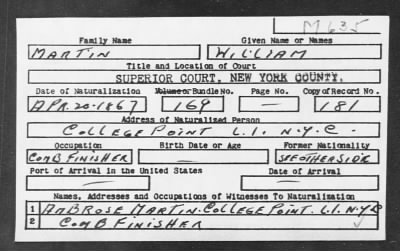 M635
Family Name Given Name or Names
MARTIN WILLIAM
Title and Location of Court
SUPERIOR COURT, NEW YORK COUNTY.
Date of Naturalization Volume or Bundle No. Page No. Copy of Record No.
APR. 20-1867 169 — 181
Address of Naturalized Person
COLLEGE POINT L.I. N.Y.C.
Occupation Birth Date or Age Former Nationality
COMB FINISHER — SEE OTHER SIDE
Port of Arrival in the United States Date of Arrival
— —
Names, Addresses and Occupations of Witnesses To Naturalization
1 AMBROSE MARTIN-COLLEGE POINT. L.I. N.Y.C
2 COMB FINISHER